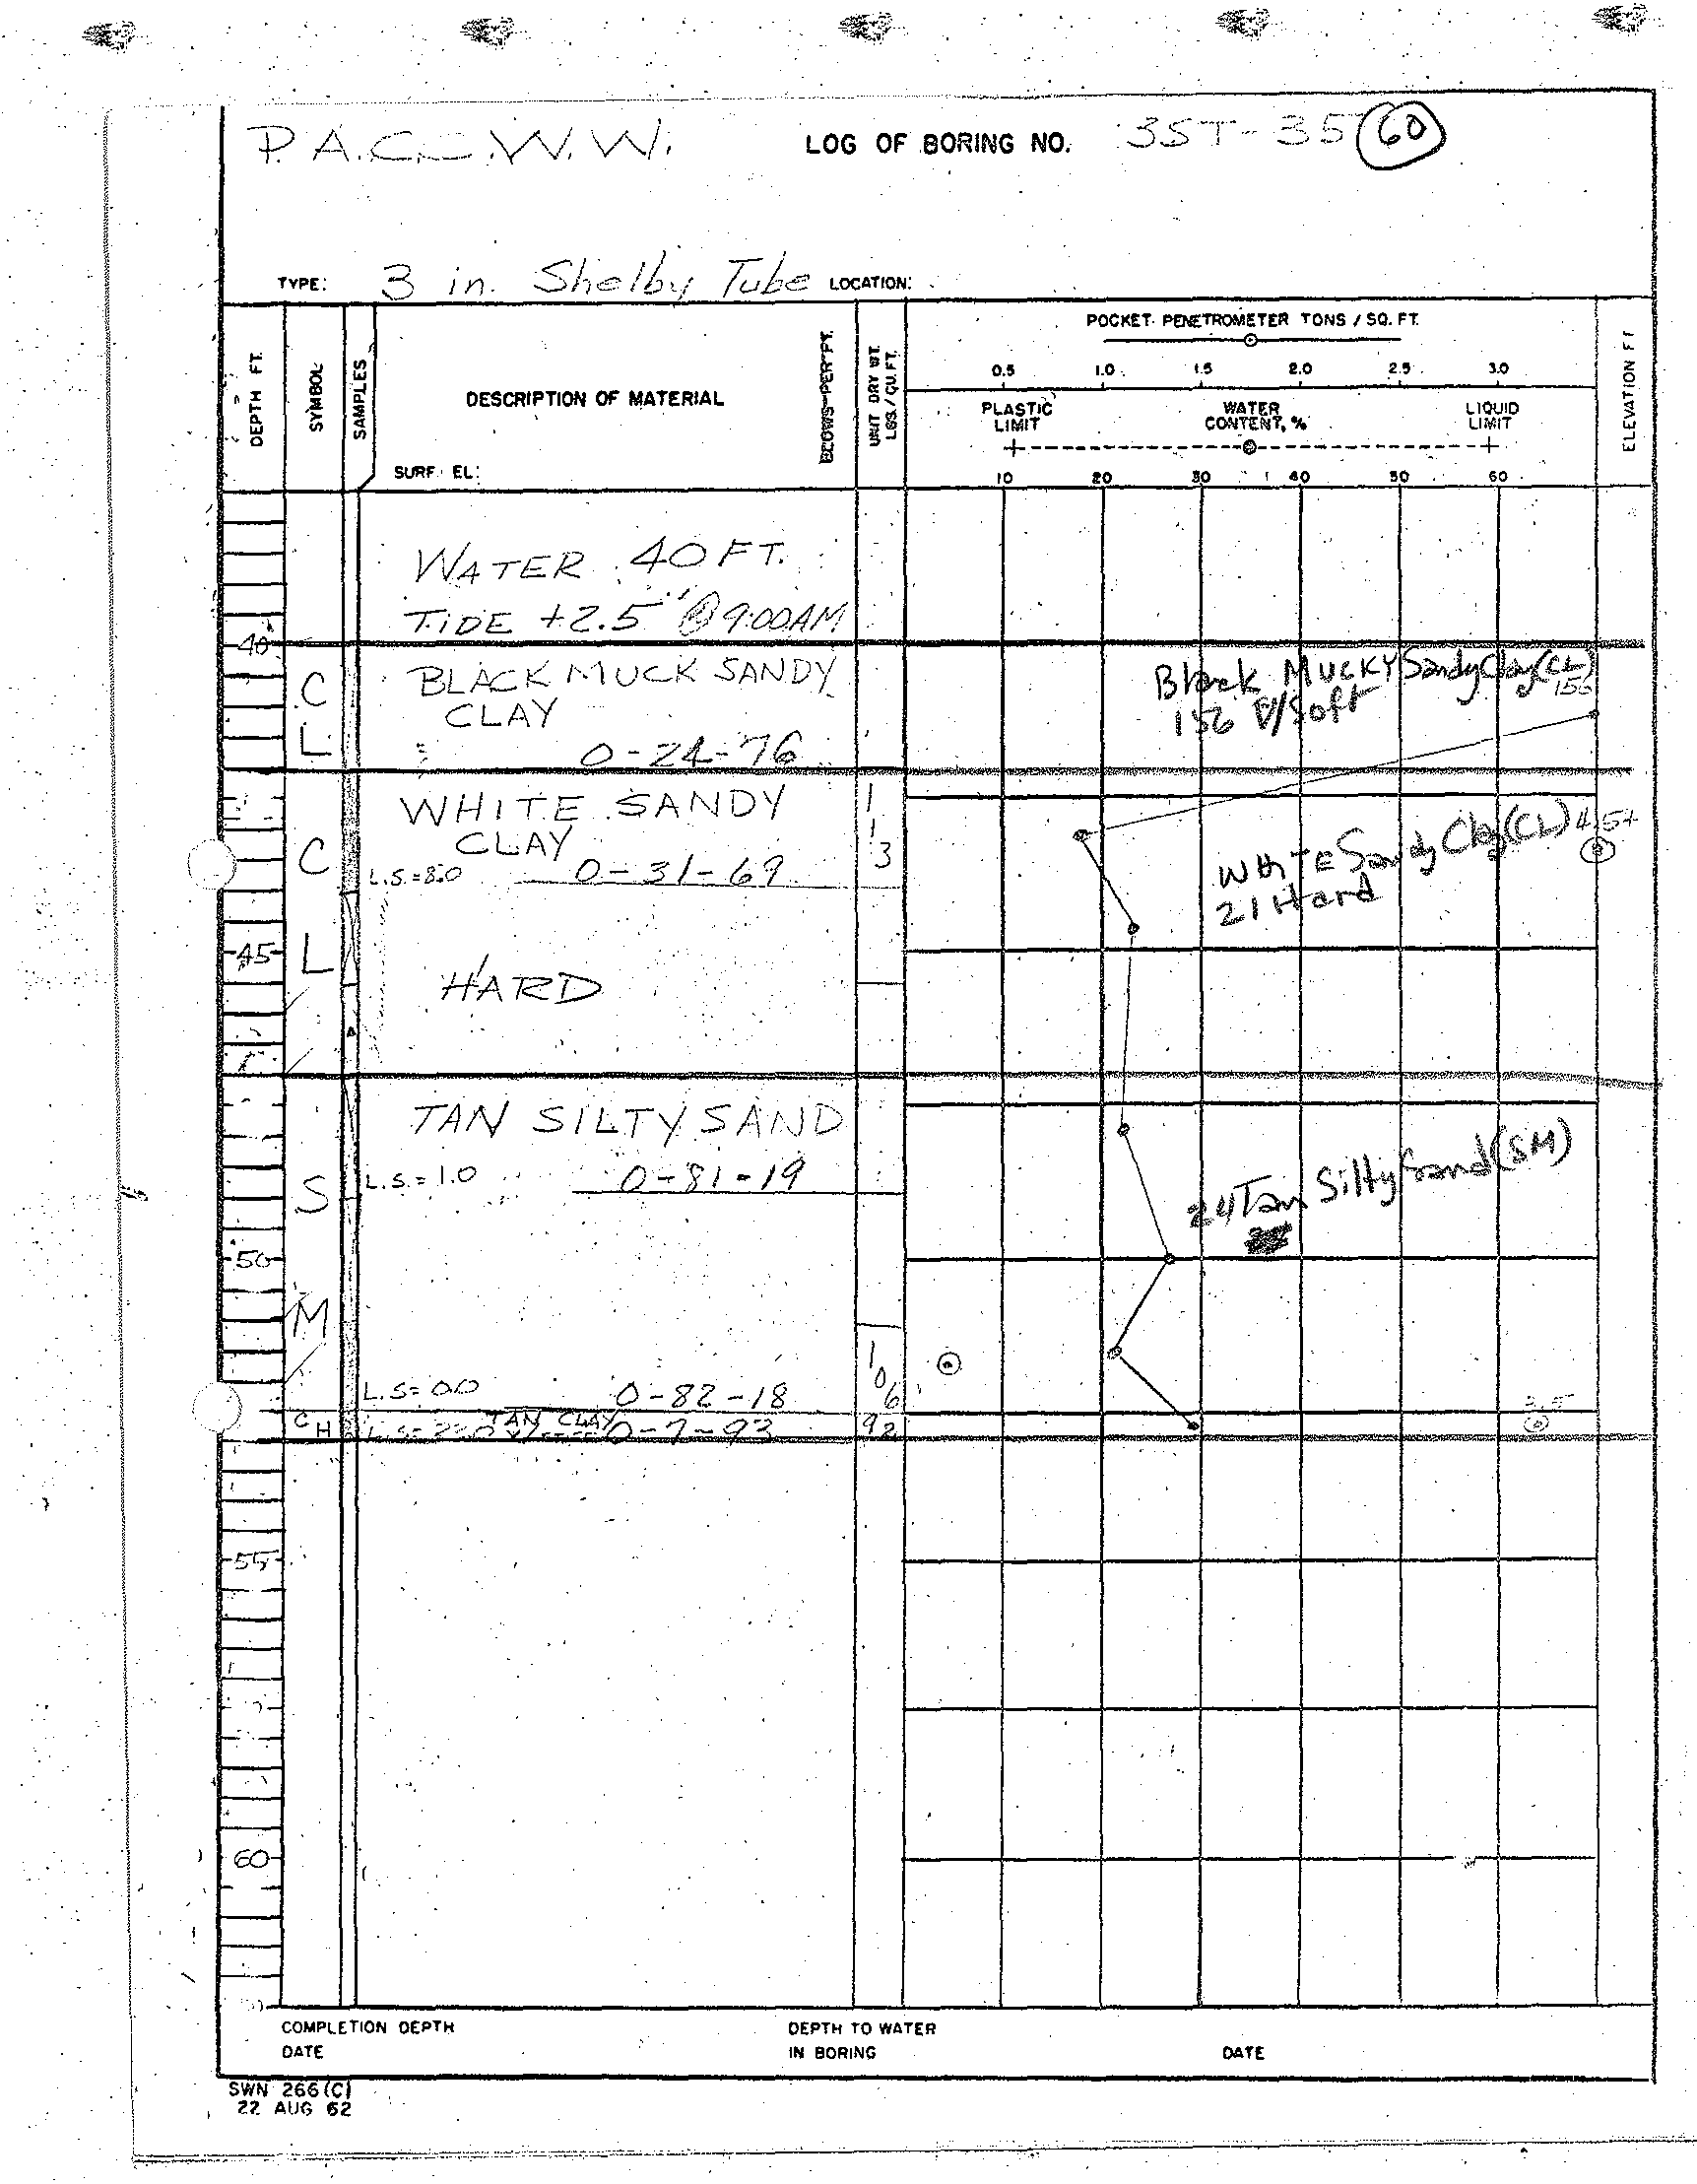 P.A.C.C.W.W. LOG OF BORING NO. 3ST-35 60
TYPE: 3 in. Shelby Tube LOCATION:
DEPTH FT.
SYMBOL
SAMPLES
DESCRIPTION OF MATERIAL
SURF. EL:
BLOWS PER FT.
UNIT DRY WT. LBS./CU. FT.
POCKET PENETROMETER TONS / SQ. FT.
0.5 1.0 1.5 2.0 2.5 3.0
PLASTIC LIMIT
WATER CONTENT, %
LIQUID LIMIT
10 20 30 40 50 60
ELEVATION FT
WATER 40 FT.
TIDE +2.5" @ 9:00AM
40
C L
BLACK MUCK SANDY
CLAY
0-24-76
Black MUCKY Sandy Clay (CL)
156
156 V/Soft
WHITE SANDY
CLAY
C L
L.S.=8.0 0-31-69
113
White Sandy Clay (CL) 4.5+
21 Hard
45
HARD
TAN SILTY SAND
S M
L.S.=1.0 0-81-19
24 Tan Silty Sand (SM)
50
L.S=0.0 0-82-18
106
CH TAN CLAY 0-7-93 92
3.5
55
60
COMPLETION DEPTH
DATE
DEPTH TO WATER
IN BORING
DATE
SWN 266 (C)
22 AUG 62